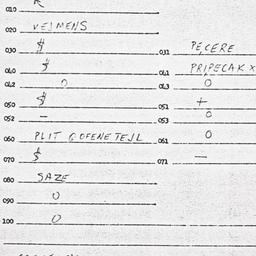 010
020 VEIMENS
030 $ 031 PEČERE
040 $ 041 PRIPEČAK X
042 0 043 0
050 $ 051 +
052 – 053 0
060 PLIT GOFENETEJL 061 0
070 $ 071 —
080 SAZE
090 0
100 0